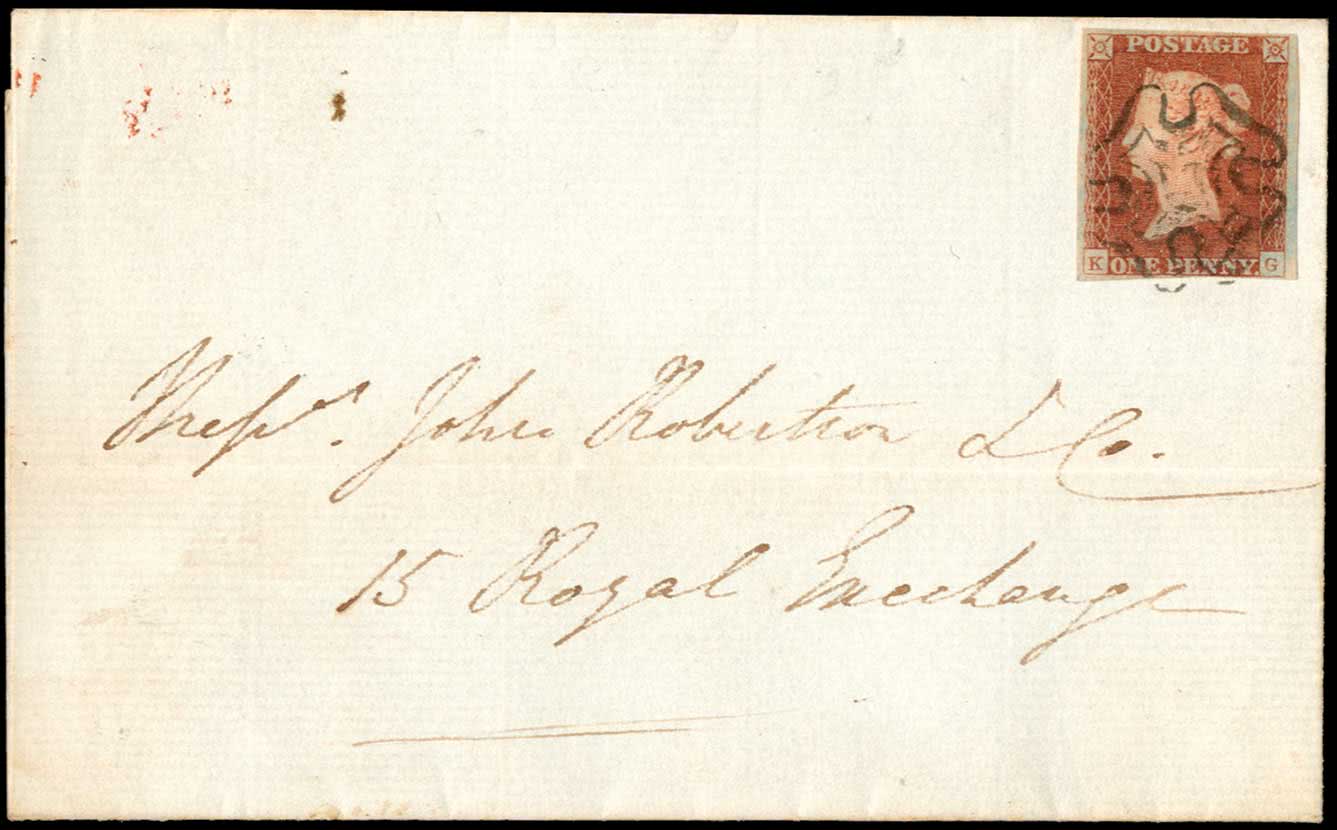 POSTAGE
K ONE PENNY G
Messrs. John Robertson & Co.
15 Royal Exchange